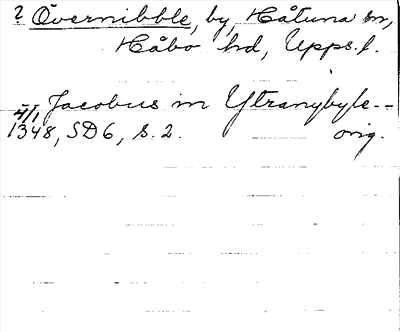 ? Övernibble, by, Håtuna sn,
Håbo hd, Upps. l.
4/1 Jacobus in Ytranybyle--
1348, SD6, s. 2. orig.